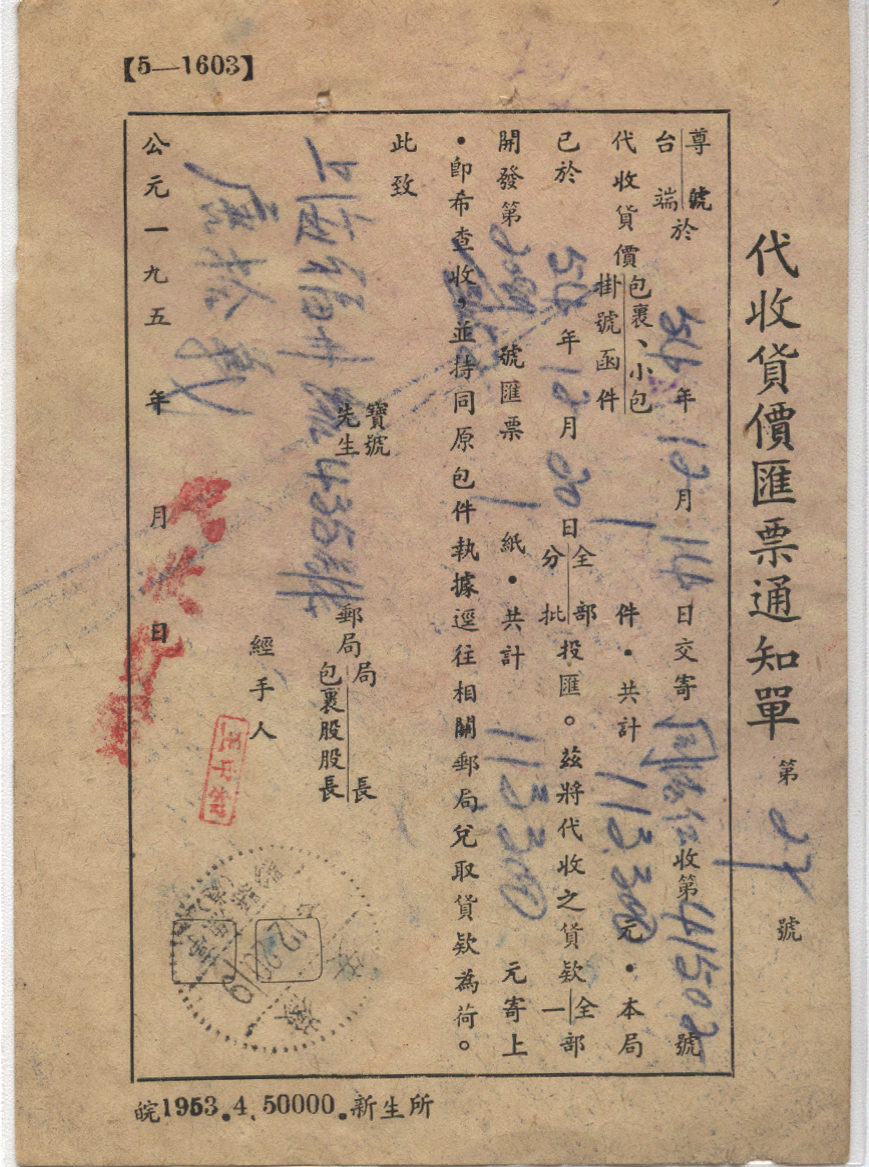 【5—1603】
代收貨價匯票通知單 第27號
尊號
台端
於54年12月14日交寄 收第41502號
代收貨價
包裹、小包
掛號函件
1件・共計113300元・本局
已於54年12月20日
全部
分批
投匯。茲將代收之貨款
全部
一
開發第 號匯票1紙・共計113300元寄上
・卽希查收，並持同原包件執據逕往相關郵局兌取貨款為荷。
此致
寶號
先生
上海福州路435號
郵局
局長
包裹股股長
經手人
公元一九五 年 月 日
皖1953.4.50000.新生所